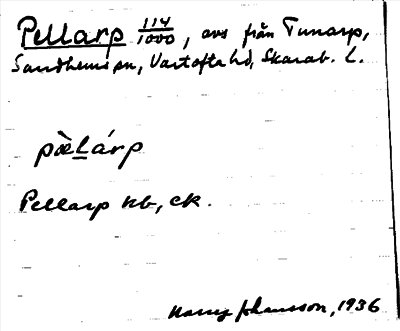 Pellarp 114/1000, avs från Tunarp,
Sandhems sn, Vartofta hd, Skarab. L.
pæ̀Lárp
Pellarp kb, ek.
Harry Johansson, 1936